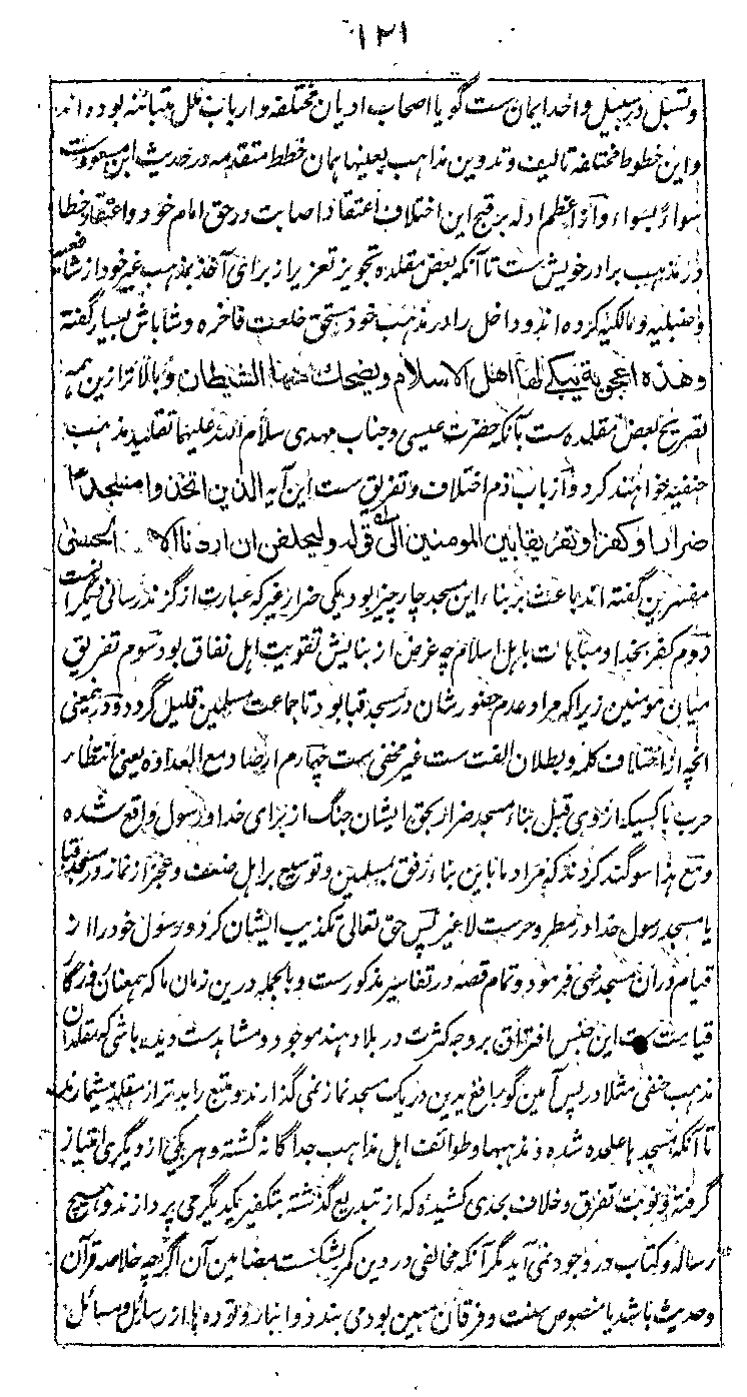 ۱۲۱
و تسبل در سبیل واحد ایمان ست گویا اصحاب ادیان مختلفه و ارباب ملل متبائنه بوده اند
و این خطوط مختلفه تالیف و تدوین مذاهب بعینها همان خطط متقدمه در حدیث ابن مسعودست
سواءً بسواء و از اعظم ادله بر قبح این اختلاف اعتقاد اصابت در حق امام خود و اعتقاد خطا
در مذهب برادر خویش ست تا آنکه بعض مقلده تجویز تعزیر از برای آخذ بمذهب غیر خود از شافعیه
و حنبلیه و مالکیه کرده اند و داخل را در مذهب خود مستحق خلعت فاخره و شاباش بسیار گفته
وهذه اعجوبة يبكي لها اهل الاسلام ويضحك منها الشيطان و بالاتر ازین همه
تصریح بعض مقلده ست بآنکه حضرت عیسی و جناب مهدی سلام الله علیهما تقلید مذهب
حنفیه خواهند کرد و از باب ذم اختلاف و تفریق ست این آیه الذین اتخذوا مسجدا
ضرارا وكفرا وتفريقا بين المومنين الی قوله وليحلفن ان اردنا الا الحسنى
مفسرین گفته اند باعث بر بناء این مسجد چار چیز بود یکی ضرار غیر که عبارت از گزند رسانی دیگرانست
دوم کفر بخدا و مباهات باهل اسلام چه غرض از بنایش تقویت اهل نفاق بود سوم تفریق
میان مومنین زیرا که مراد عدم حضور شان در مسجد قبا بود تا جماعت مسلمین قلیل گردد و درین معنی
انچه از اختلاف کلمه و بطلان الفت ست غیر مخفی ست چهارم ارصاد مع العداوه یعنی انتظار
حرب با کسیکه از وی قبل بناء مسجد ضرار بحق ایشان جنگ از برای خدا و رسول واقع شده
و مع هذا سوگند کردند که مراد ما باین بناء رفق بمسلمین و توسیع بر اهل ضعف و عجز از نماز در مسجد قبا
یا مسجد رسول خدا در مطر و حرست لا غیر پس حق تعالی تکذیب ایشان کرد و رسول خود را از
قیام دران مسجد نهی فرمود و تمام قصه در تفاسیر مذکورست و بالجمله درین زمان ما که همعنان
قیامت ست این جنس افتراق بر وجه کثرت در بلاد هند موجود و مشاهدست دیده باشی که مقلدان
مذهب حنفی مثلا در پس آمین گو یا رافع یدین در یک مسجد نماز نمی گذارند و متبع را بدتر از مقلد میشمارند
تا آنکه مسجد ها علحده شده و مذهبها و طوائف اهل مذاهب جداگانه گشته و هر یکی از دیگری امتیاز
گرفته و نوبت تفرق و خلاف بحدی کشیده که از تبدیع گذشته بتکفیر یکدیگر می پردازند و هیچ
رساله و کتاب در وجود نمی آید مگر آنکه مخالفی در دین کمر بشکست مضامین آن اگرچه خلاصه قرآن
و حدیث باشد یا منصوص سنت و فرقان مبین بود می بندد و انبار و توده ها از رسائل و مسائل